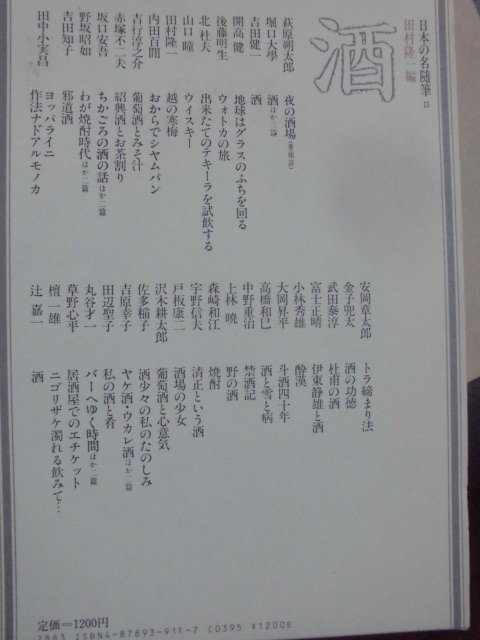 日本の名随筆11
田村隆一編
酒
萩原朔太郎 夜の酒場(巻頭詩)
堀口大學 酒ほか二篇
吉田健一 酒
開高健 地球はグラスのふちを回る
後藤明生 ウォトカの旅
北杜夫 出来たてのテキーラを試飲する
山口瞳 ウイスキー
田村隆一 越の寒梅
内田百閒 おからでシヤムパン
吉行淳之介 葡萄酒とみそ汁
赤塚不二夫 紹興酒とお茶割り
坂口安吾 ちかごろの酒の話ほか二篇
野坂昭如 わが焼酎時代ほか二篇
吉田知子 邪道酒
田中小実昌 ヨッパライニ
作法ナドアルモノカ
安岡章太郎 トラ締まり法
金子兜太 酒の功徳
武田泰淳 杜甫の酒
富士正晴 伊東静雄と酒
小林秀雄 酔漢
大岡昇平 斗酒四十年
高橋和巳 酒と雪と病
中野重治 禁酒記
上林暁 野の酒
森崎和江 焼酎
宇野信夫 清正という酒
戸板康二 酒場の少女
沢木耕太郎 葡萄酒と心意気
佐多稲子 酒少々の私のたのしみ
吉原幸子 ヤケ酒・ウカレ酒ほか二篇
田辺聖子 私の酒と肴
丸谷才一 バーへゆく時間ほか二篇
草野心平 居酒屋でのエチケット
檀一雄 ニゴリザケ濁れる飲みて…
辻嘉一 酒
定価=1200円
2883 ISBN4-87893-911-7 C0395 ¥1200E